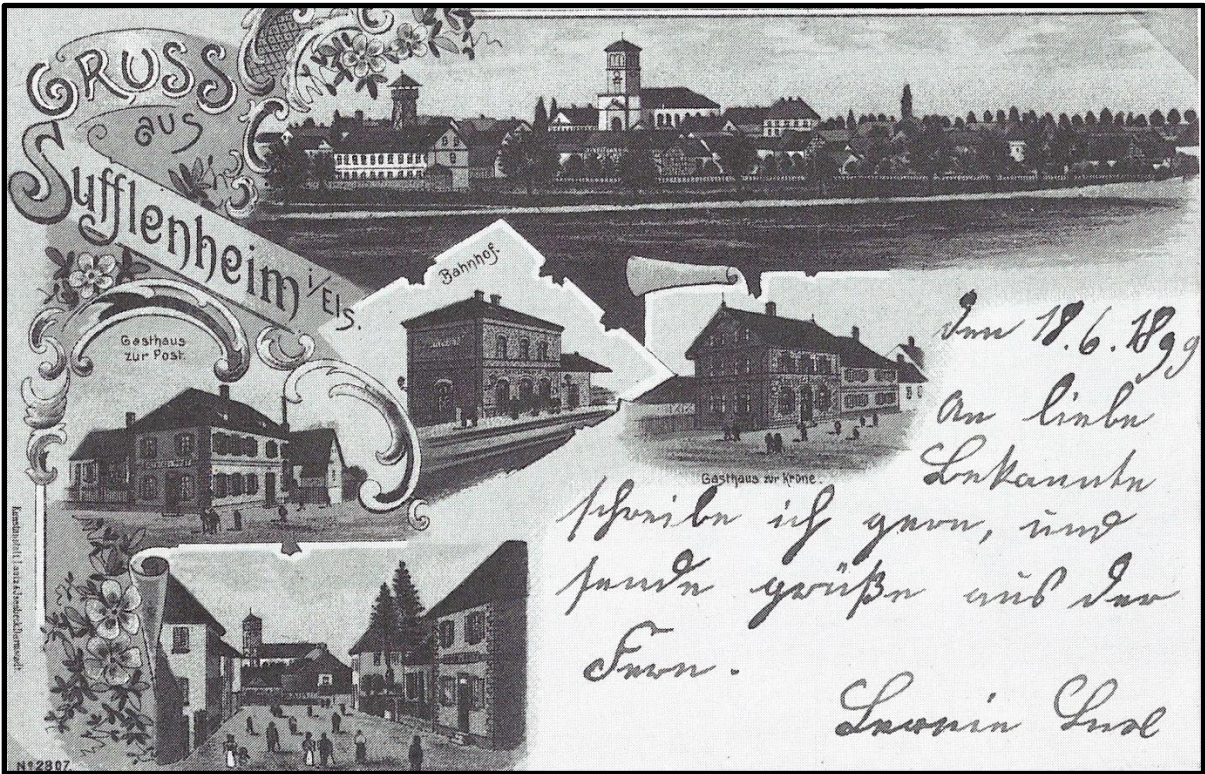 GRUSS
aus
Sufflenheim
i/Els.
Bahnhof.
Gasthaus
zur Post.
Gasthaus zur Krone.
Den 18.6.1899
An liebe
Bekannte
schreibe ich gern, und
sende grüße aus der
Fern.
Nº 2807